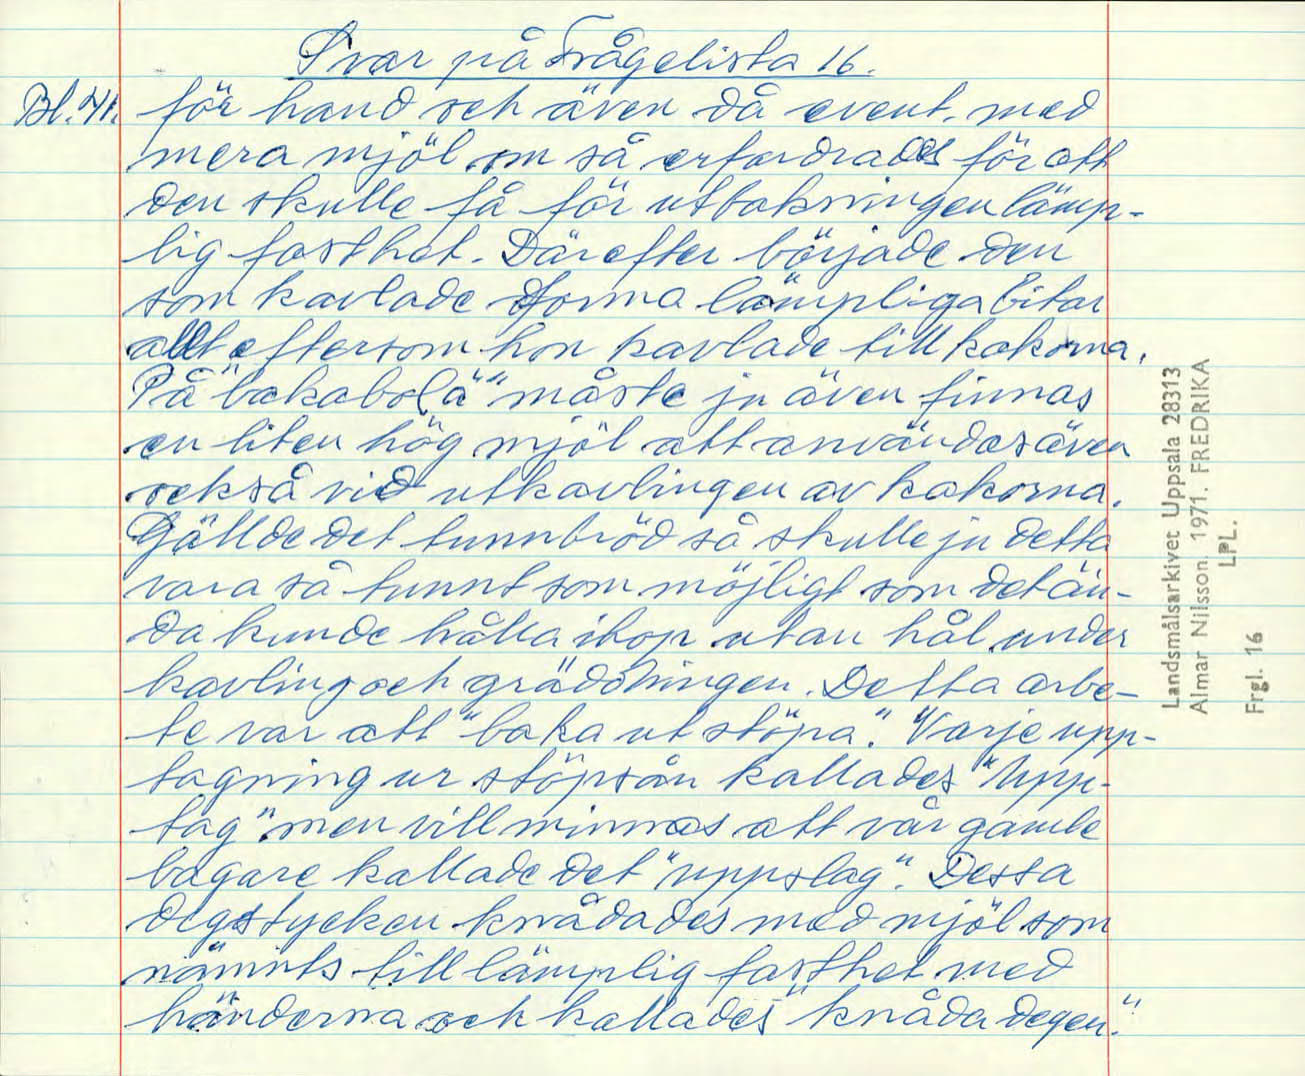 Svar på Frågelista 16.
Bl. 41. för hand och även då event. med
mera mjöl om så erfordrades för att
den skulle få för utbakningen lämp-
lig fasthet. Därefter började den
som kavlade forma lämpliga bitar
allt eftersom hon kavlade till kakorna.
På "bakabolä" måste ju även finnas
en liten hög mjöl att användas även
också vid utkavlingen av kakorna.
Gällde det tunnbröd så skulle ju detta
vara så tunnt som möjligt som det än-
da kunde hålla ihop utan hål under
kavling och gräddningen. Detta arbe-
te var att "baka ut stöpa". Varje upp-
tagning ur stöpsån kallades "Upp-
tag" men vill minnas att vår gamle
bagare kallade det "uppslag". Dessa
degstycken knådades med mjöl som
nämnts till lämplig fasthet med
händerna och kallades "knåda degen."
Landsmålsarkivet Uppsala 28313
Almar Nilsson. 1971. FREDRIKA
LPL.
Frgl. 16